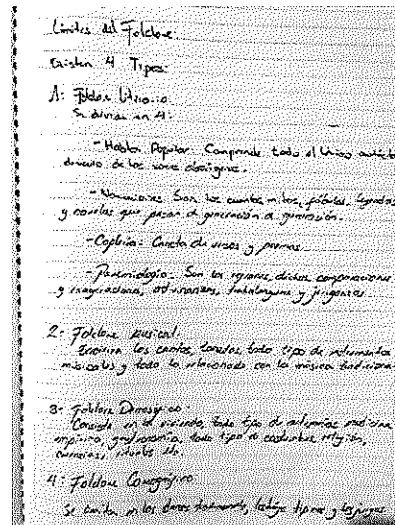 Limites del Folclore
Existen 4 Tipos:
1: Folclore Literario
Se divide en 4:
- Hablar Popular Comprende todo el
de las voces
- Narraciones: Son los cuentos mitos, fábulas, leyendas
y novelas que pasan de generación a generación.
- Coplería: Consta de versos y poemas.
- Paremiología: Son los refranes, dichos, comparaciones
y exageraciones, adivinanzas, trabalenguas y jergas
2- Folclore Musical.
los cantos, tonadas, todo tipo de instrumentos
musicales y todo lo relacionado con la música tradicional
3- Folclore Demosófico
Consiste en el vivienda, todo tipo de artesanías, medicina
empírica, gastronomía, todo tipo de costumbre religión,
creencias,
4: Folclore Coreográfico
Se centra en las danzas trajes típicos y los juegos